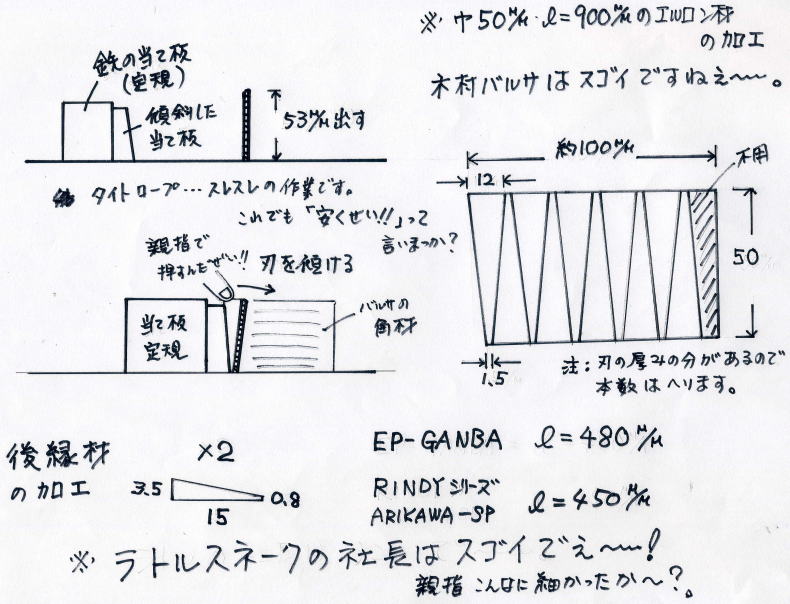 ※ 巾50㍉・l=900㍉のエルロン材
の加工
木村バルサはスゴイですねぇ〜〜。
鉄の当て板
(定規)
傾斜した
当て板
53㍉出す
タイトロープ…スレスレの作業です。
これでも「安くせい!!」って
言いまっか?
親指で
押すんだぜい!!
刃を傾ける
当て板
定規
バルサの
角材
約100㍉
不用
12
50
1.5
注:刃の厚みの分があるので
本数はへります。
後縁材
の加工
×2
3.5
0.8
15
EP-GANBA l=480㍉
RINDYシリーズ
ARIKAWA-SP
l=450㍉
※ ラトルスネークの社長はスゴイでぇ〜〜!
親指こんなに細かったか〜?。